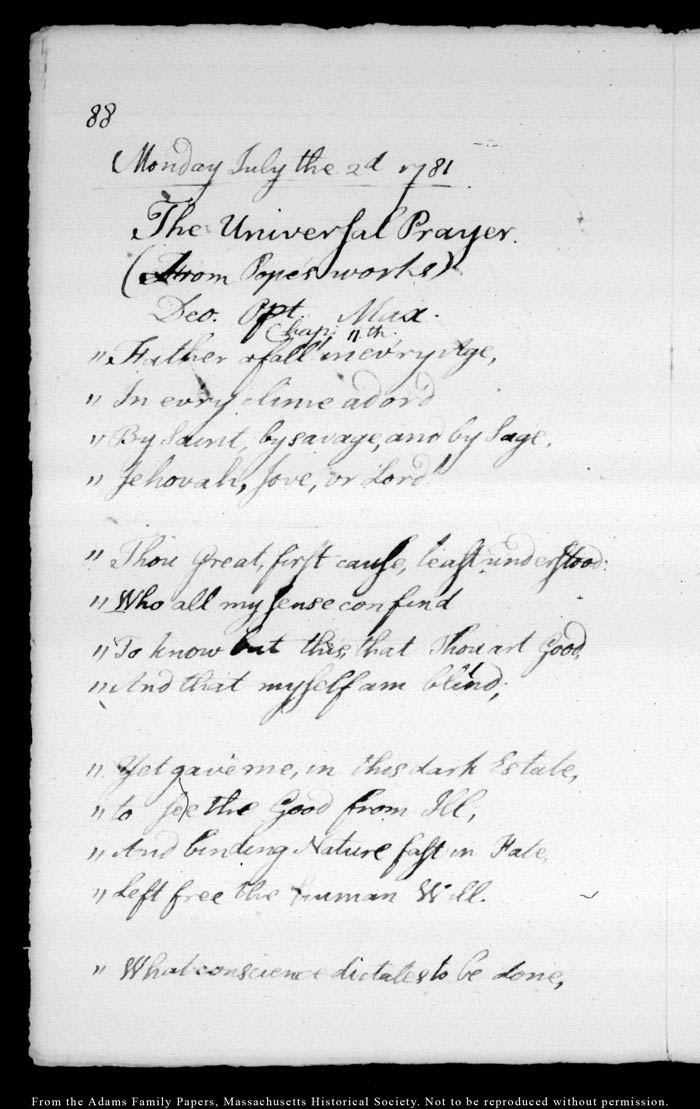 88
Monday July the 2d 1781
The Universal Prayer.
(From Pope's works)
Deo. Opt. Max.
Chap: 11th.
" Father of all in evry Age,
" In evry clime adord
" By Saint, by savage, and by Sage,
" Jehovah, Jove, or Lord!
" Thou Great, first cause, least understood:
" Who all my sense confind
" To know but this, that Thou art Good,
" And that myself am blind;
" Yet gave me, in this dark Estate,
" to see the Good from Ill;
" And binding Nature fast in Fate,
" Left free the human Will.
" What conscience dictates to be done,
From the Adams Family Papers, Massachusetts Historical Society. Not to be reproduced without permission.